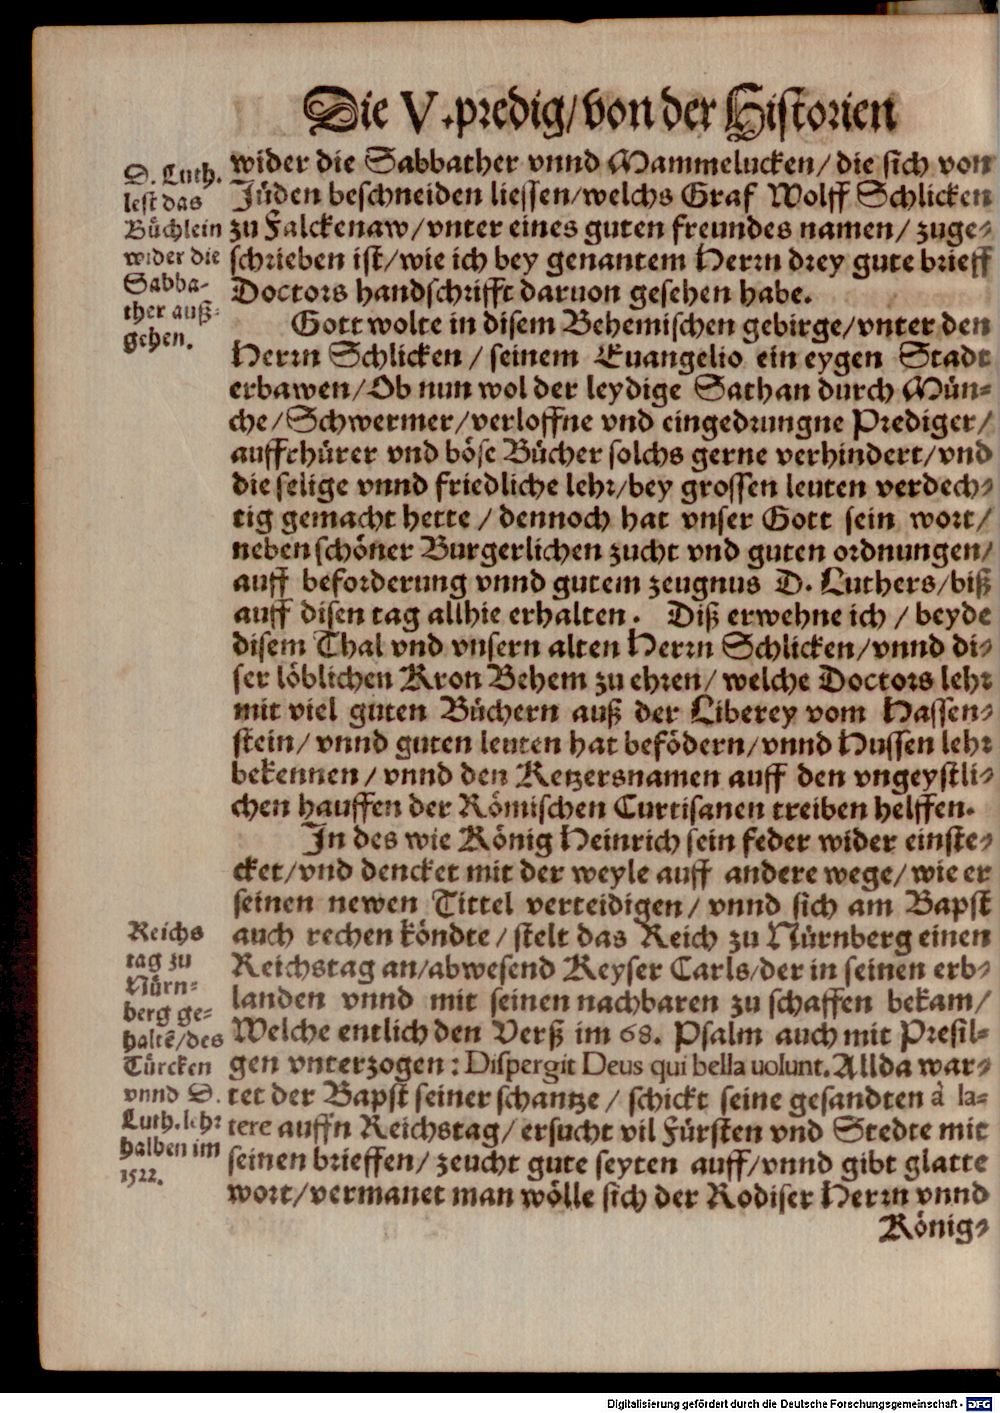 Die V. predig/ von der Historien
D. Luth.
lest das
Büchlein
wider die
Sabba-
ther auß-
gehen.
wider die Sabbather vnnd Mammelucken/ die sich von
Jüden beschneiden liessen/ welchs Graf Wolff Schlicken
zu Falckenaw/ vnter eines guten freundes namen/ zuge-
schrieben ist/ wie ich bey genantem Herrn drey gute brieff
Doctors handschrifft daruon gesehen habe.
Gott wolte in disem Behemischen gebirge/ vnter den
Herrn Schlicken/ seinem Euangelio ein eygen Stadt
erbawen/ Ob nun wol der leydige Sathan durch Mün-
che/ Schwermer/ verloffne vnd eingedrungne Prediger/
auffrhürer vnd böse Bücher solchs gerne verhindert/ vnd
die selige vnnd friedliche lehr/ bey grossen leuten verdech-
tig gemacht hette/ dennoch hat vnser Gott sein wort/
neben schöner Burgerlichen zucht vnd guten ordnungen/
auff beforderung vnnd gutem zeugnus D. Luthers/ biß
auff disen tag allhie erhalten. Diß erwehne ich/ beyde
disem Thal vnd vnsern alten Herrn Schlicken/ vnnd di-
ser löblichen Kron Behem zu ehren/ welche Doctors lehr
mit viel guten Büchern auß der Liberey vom Hassen-
stein/ vnnd guten leuten hat befödern/ vnnd Hussen lehr
bekennen/ vnnd den Ketzersnamen auff den vngeystli-
chen hauffen der Römischen Curtisanen treiben helffen.
In des wie König Heinrich sein feder wider einste-
cket/ vnd dencket mit der weyle auff andere wege/ wie er
seinen newen Tittel verteidigen/ vnnd sich am Bapst
auch rechen köndte/ stelt das Reich zu Nürnberg einen
Reichstag an/ abwesend Keyser Carls/ der in seinen erb-
landen vnnd mit seinen nachbaren zu schaffen bekam/
Welche entlich den Verß im 68. Psalm auch mit Presil-
gen vnterzogen: Dispergit Deus qui bella uolunt. Allda war-
tet der Bapst seiner schantze/ schickt seine gesandten à la-
tere auffn Reichstag/ ersucht vil Fürsten vnd Stedte mit
seinen brieffen/ zeucht gute seyten auff/ vnnd gibt glatte
wort/ vermanet man wölle sich der Rodiser Herrn vnnd
König-
Reichs
tag zu
Nürn-
berg ge-
haltẽ/ des
Türcken
vnnd D.
Luth. lehr
halben im
1522.
Digitalisierung gefördert durch die Deutsche Forschungsgemeinschaft - DFG